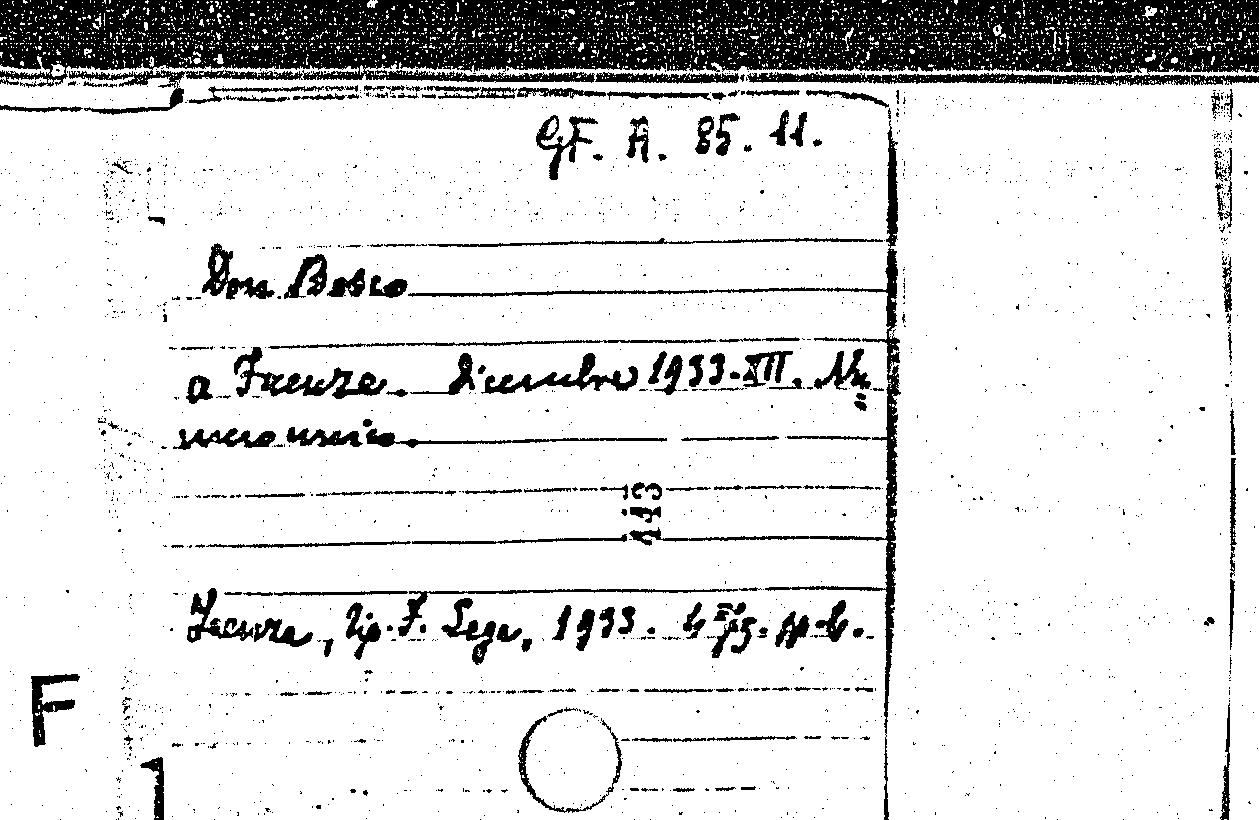 GF. A. 85. 11.
Don Bosco
a Faenza. Dicembre 1933-XII. Nu„
mero unico.
443
Faenza, Tip. F. Lega, 1933. 4° fig. pp. 6.
F
1